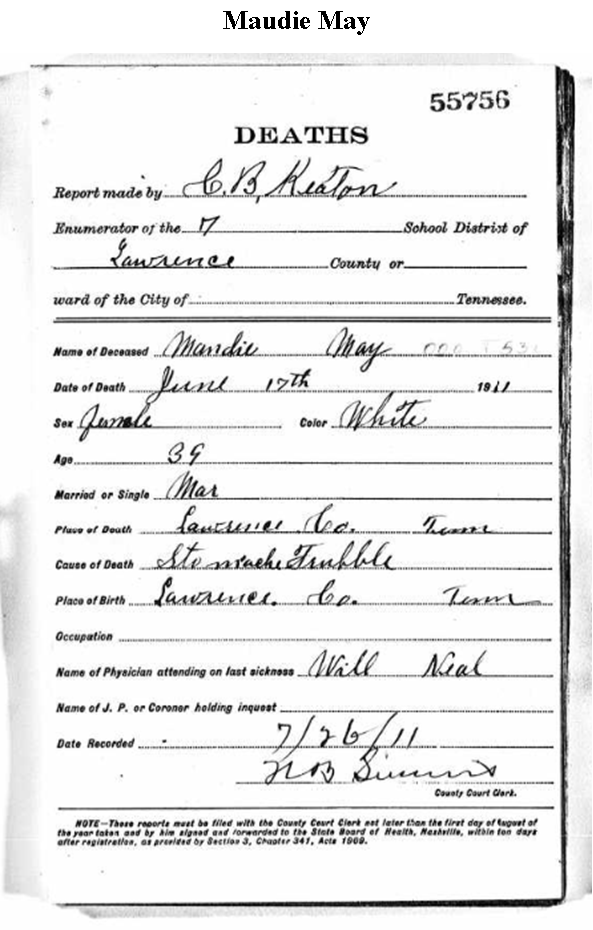 Maudie May
55756
DEATHS
Report made by C. B. Keaton
Enumerator of the 7 School District of
Lawrence County or
ward of the City of Tennessee.
Name of Deceased Mandie May
Date of Death June 17th 1911
Sex female Color White
Age 39
Married or Single Mar
Place of Death Lawrence Co. Tenn
Cause of Death Stomache Trubble
Place of Birth Lawrence. Co. Tenn
Occupation
Name of Physician attending on last sickness Will Neal
Name of J. P. or Coroner holding inquest
Date Recorded 7/26/11
County Court Clerk.
NOTE—These reports must be filed with the County Court Clerk not later than the first day of August of
the year taken and by him signed and forwarded to the State Board of Health, Nashville, within ten days
after registration, as provided by Section 3, Chapter 341, Acts 1909.